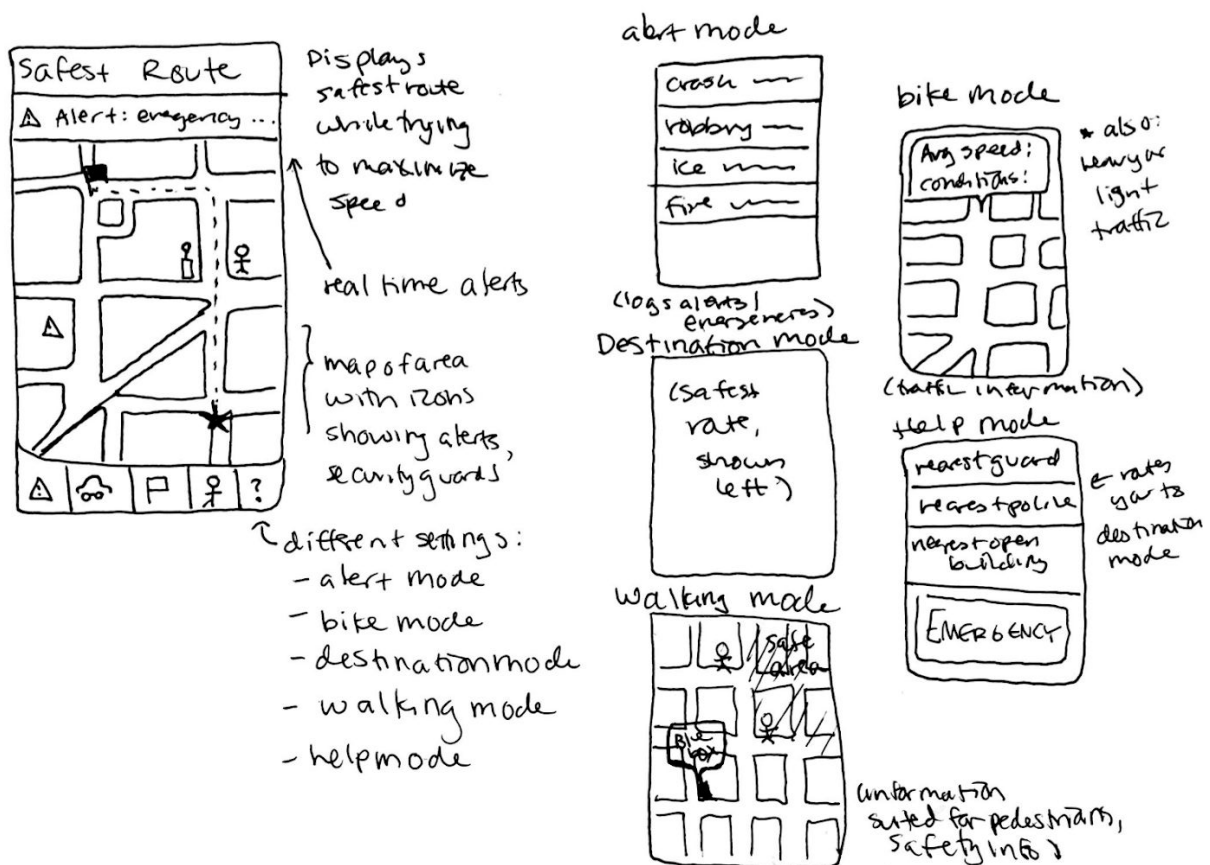 Safest Route
⚠ Alert: enegency ...
Displays
safest route
while trying
to maximize
speed
real time alerts
map of area
with icons
showing alerts,
security guards
?
different settings:
- alert mode
- bike mode
- destination mode
- walking mode
- help mode
alert mode
crash
robbery
ice
fire
(logs alerts/
emergencies)
Destination mode
(safest
route,
shown
left)
Walking mode
safe
area
Blue
box
(information
suited for pedestrians,
safety info)
bike mode
Avg speed:
conditions:
* also:
heavy or
light
traffic
(traffic information)
Help mode
nearest guard
nearest police
nearest open
building
EMERGENCY
← routes
you to
destination
mode